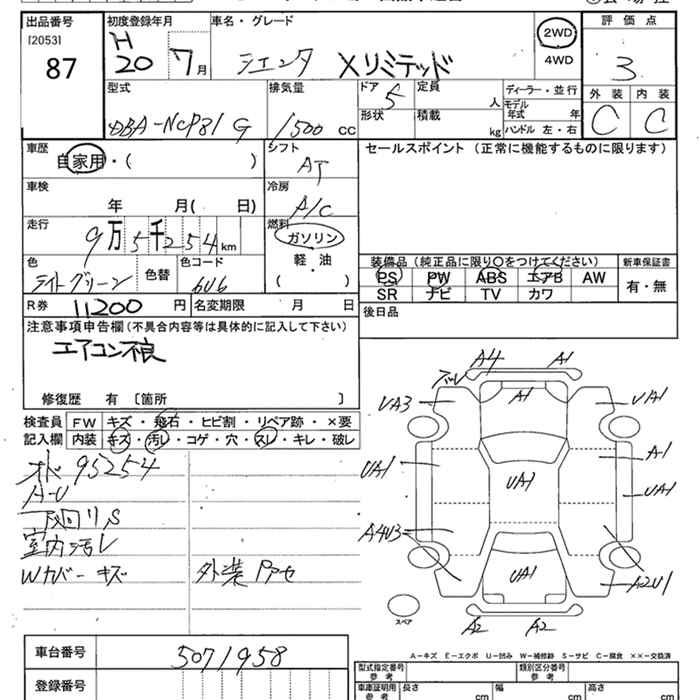 出品番号 初度登録年月 車名・グレード 評価点
[2053] H 2WD
87 20 7月 シエンタ Xリミテッド 4WD 3
型式 排気量 ドア 5 定員 人 ディーラー・並行 外装 内装
DBA-NCP81 G 1500 cc 形状 積載 kg モデル年式 年 C C
ハンドル 左・右
車歴 シフト セールスポイント (正常に機能するものに限ります)
自家用・( ) AT
車検 冷房
年 月( 日) A/C
走行 燃料
9万5千254km ガソリン
色 色替 色コード 軽・油 装備品 (純正品に限り○をつけてください) 新車保証書
ライトグリーン 6U6 ( ) PS PW ABS エアB AW 有・無
SR ナビ TV カワ
R券 11200 円 名変期限 月 日 後日品
注意事項申告欄(不具合内容等は具体的に記入して下さい)
エアコン不良
修復歴 有 [箇所 ]
検査員 FW キズ・飛石・ヒビ割・リペア跡・×要
記入欄 内装 キズ・汚レ・コゲ・穴・スレ・キレ・破レ
95254
A-U
下廻りS
室内汚レ
Wカバーキズ 外装
A4 A1
UA3 A1 UA1
UA1 UA1 A1
UA1
A4U3
UA1 A2U1
スペア A2 A2
A－キズ E－エクボ U－凹み W－補修跡 S－サビ C－腐食 ××－交換済
車台番号 5071958
登録番号
型式指定番号 参考 類別区分番号 参考
車庫証明用 参考 長さ cm 幅 cm 高さ cm